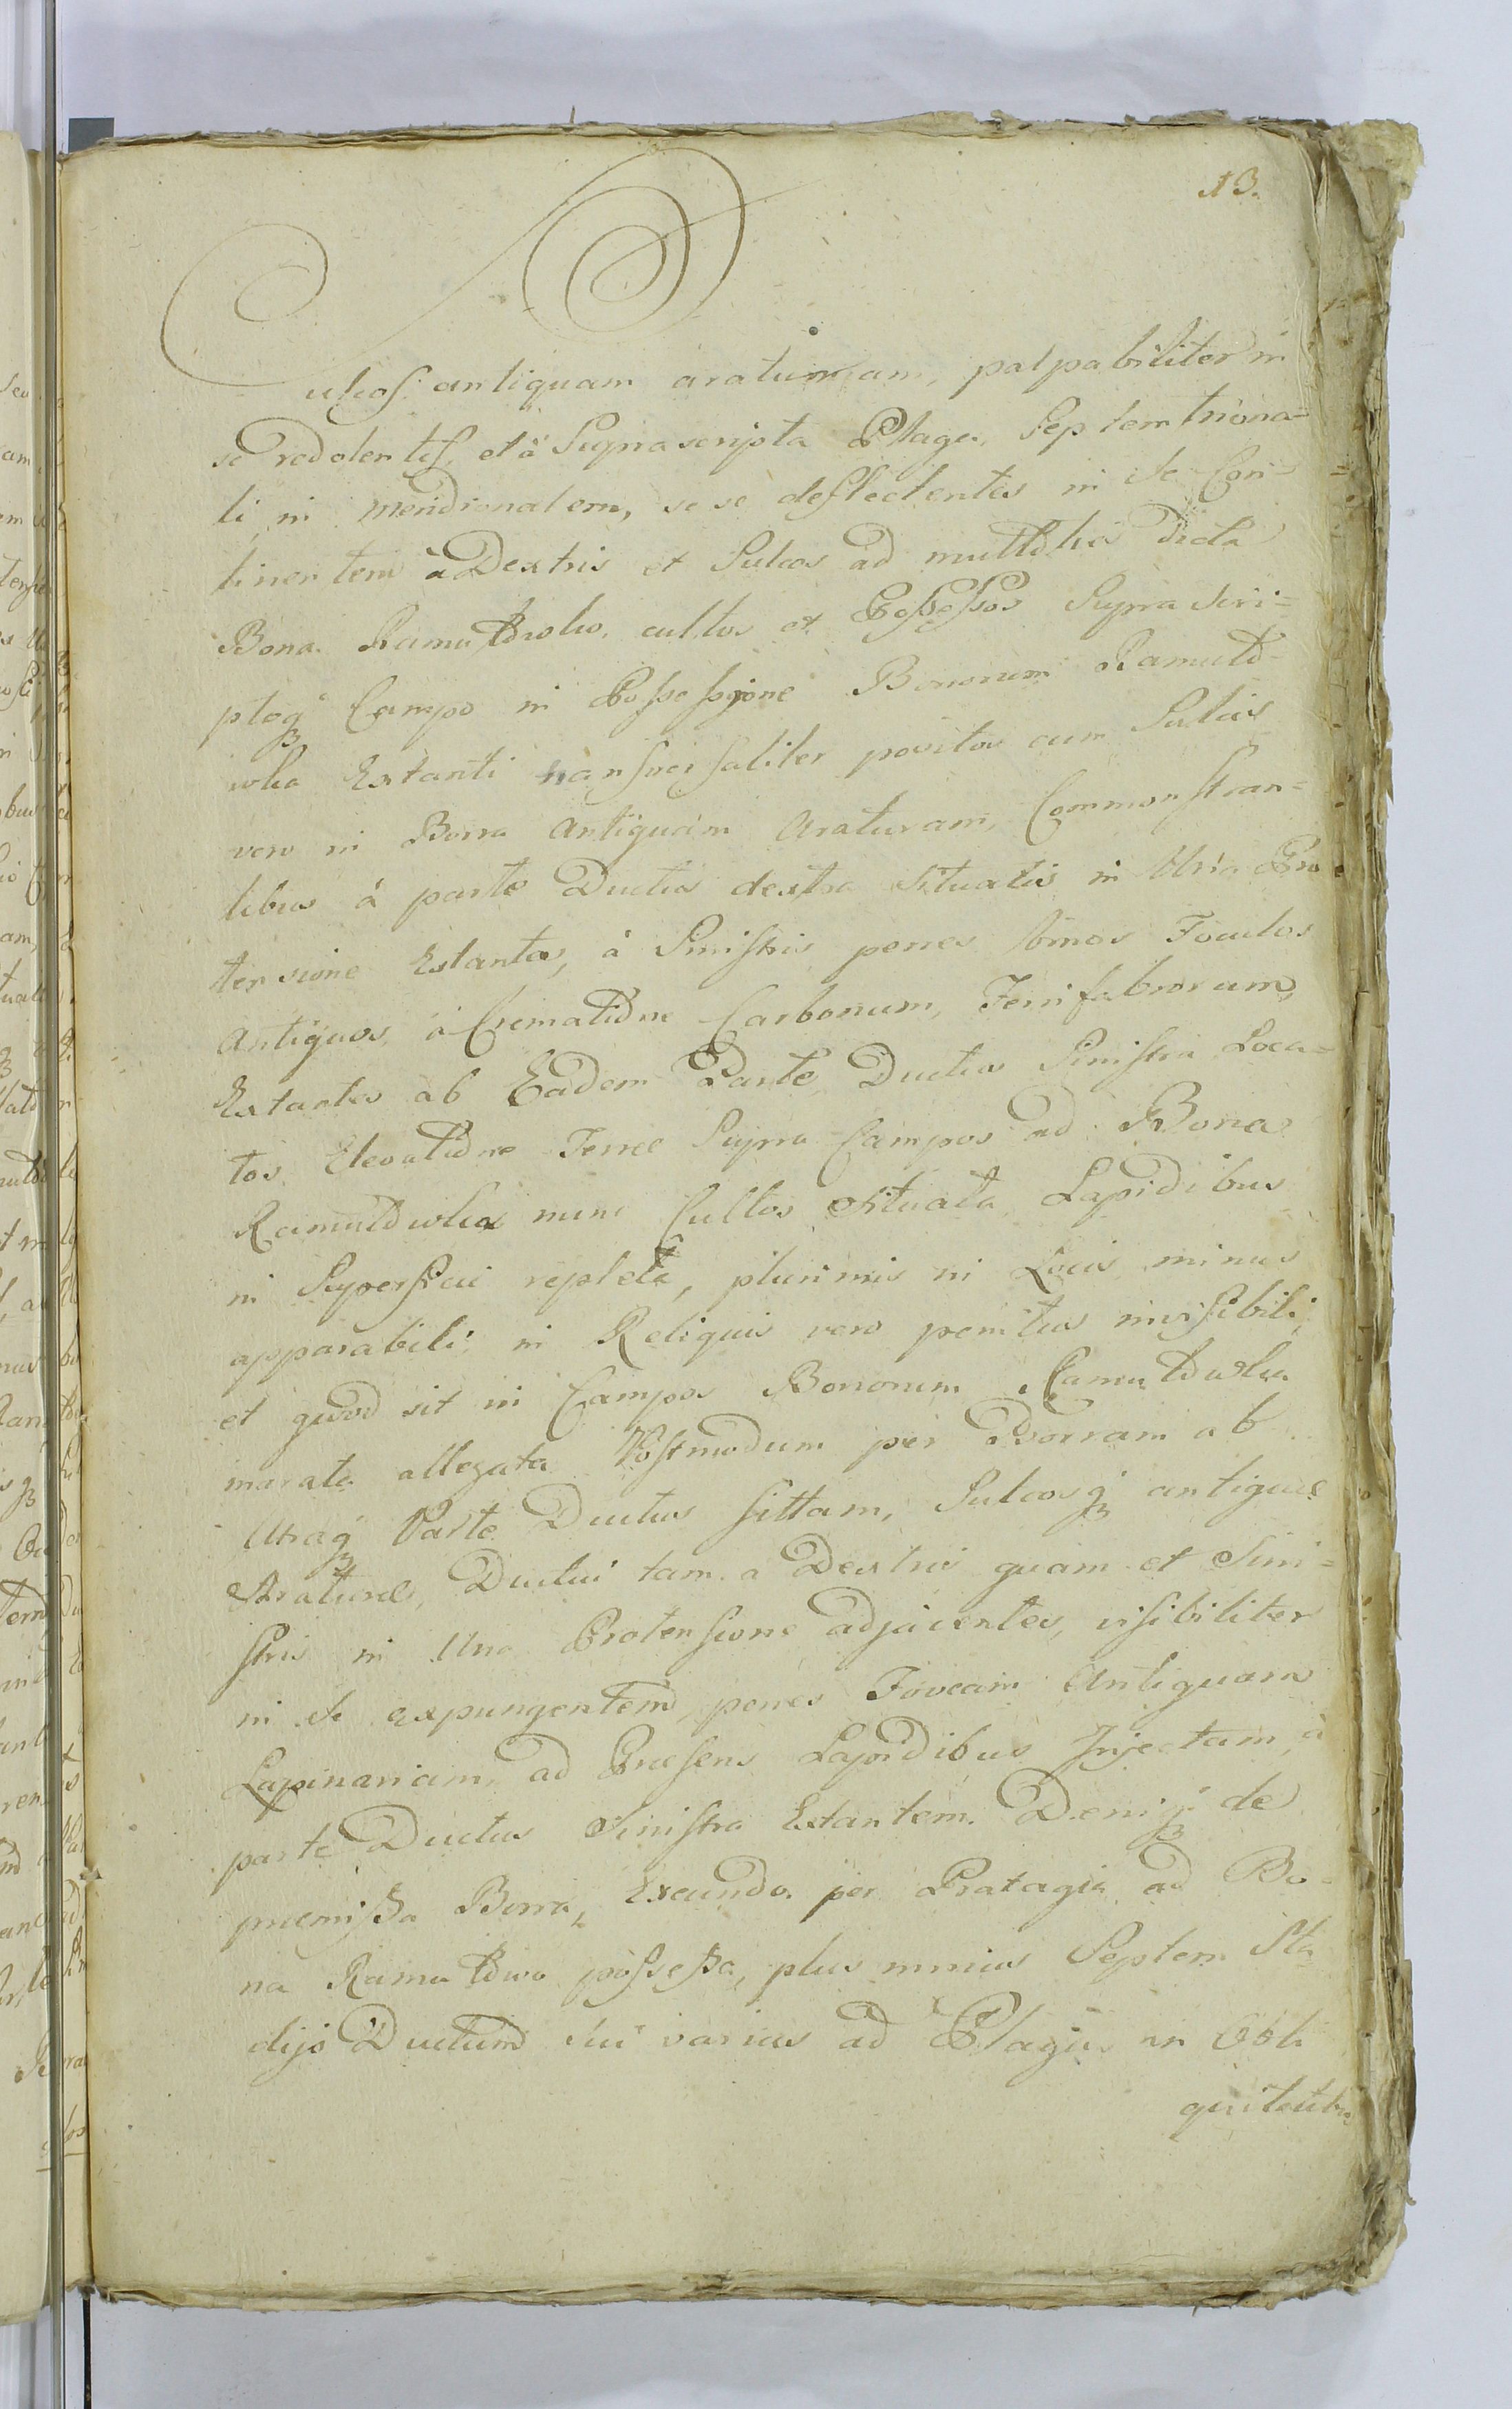 13.
ulcos antiquam araturam, palpabiliter in
se redolentes, et à Suprascripta Plaga Septemtriona=
li in meridionalem, sese deflectentes in se Con=
tinentem à Dextris et Sulcos ad dicta
Bona Ramułtowo cultos et Possessos Suprascri=
ptoq3 Campo in Possessione Bonorum Ramułto
wka Extanti transversaliter positos cum Sulcis
vero in Borra Antiquam Araturam, Commonstran=
tibus à parte Ductus dextra Situatis in Una Pro
tensione Extantes, à Sinistris penes binos Foculos
Antiquos, à Crematione Carbonum, Ferrifabrorum,
Extantes ab Eadem Parte Ductus Sinistra Loca=
tos, Elevatione Terrae Supra Campos ad Bona
Ramułtowka nunc Cultos Situata Lapidibus
in Superficie repleta, plurimis in Locis minus
apparabili, in Reliquis vero penitus invisibili,
et quod sit in Campos Bonorum Ramułtowka
inarata allegata Postmodum per Borram ab
Utraq3 Parte Ductus sittam, Sulcosq3 antiquae
Araturae, Ductui tam a Dextris quam et Sini=
stris in Una Protensione adjacentes, visibiliter
in se expungentem, penes Foveam Antiquam
Lapinariam, ad Praesens Lapidibus Injectam, à
parte Ductus Sinistra Extantem. Deniq3 de
praemissa Borra, Exeundo per Prata ad Bo=
na Ramułtowo possessa, plus minus Septem Sta
dijs Ductum sui varias ad Plagas in Obli
quitatibus